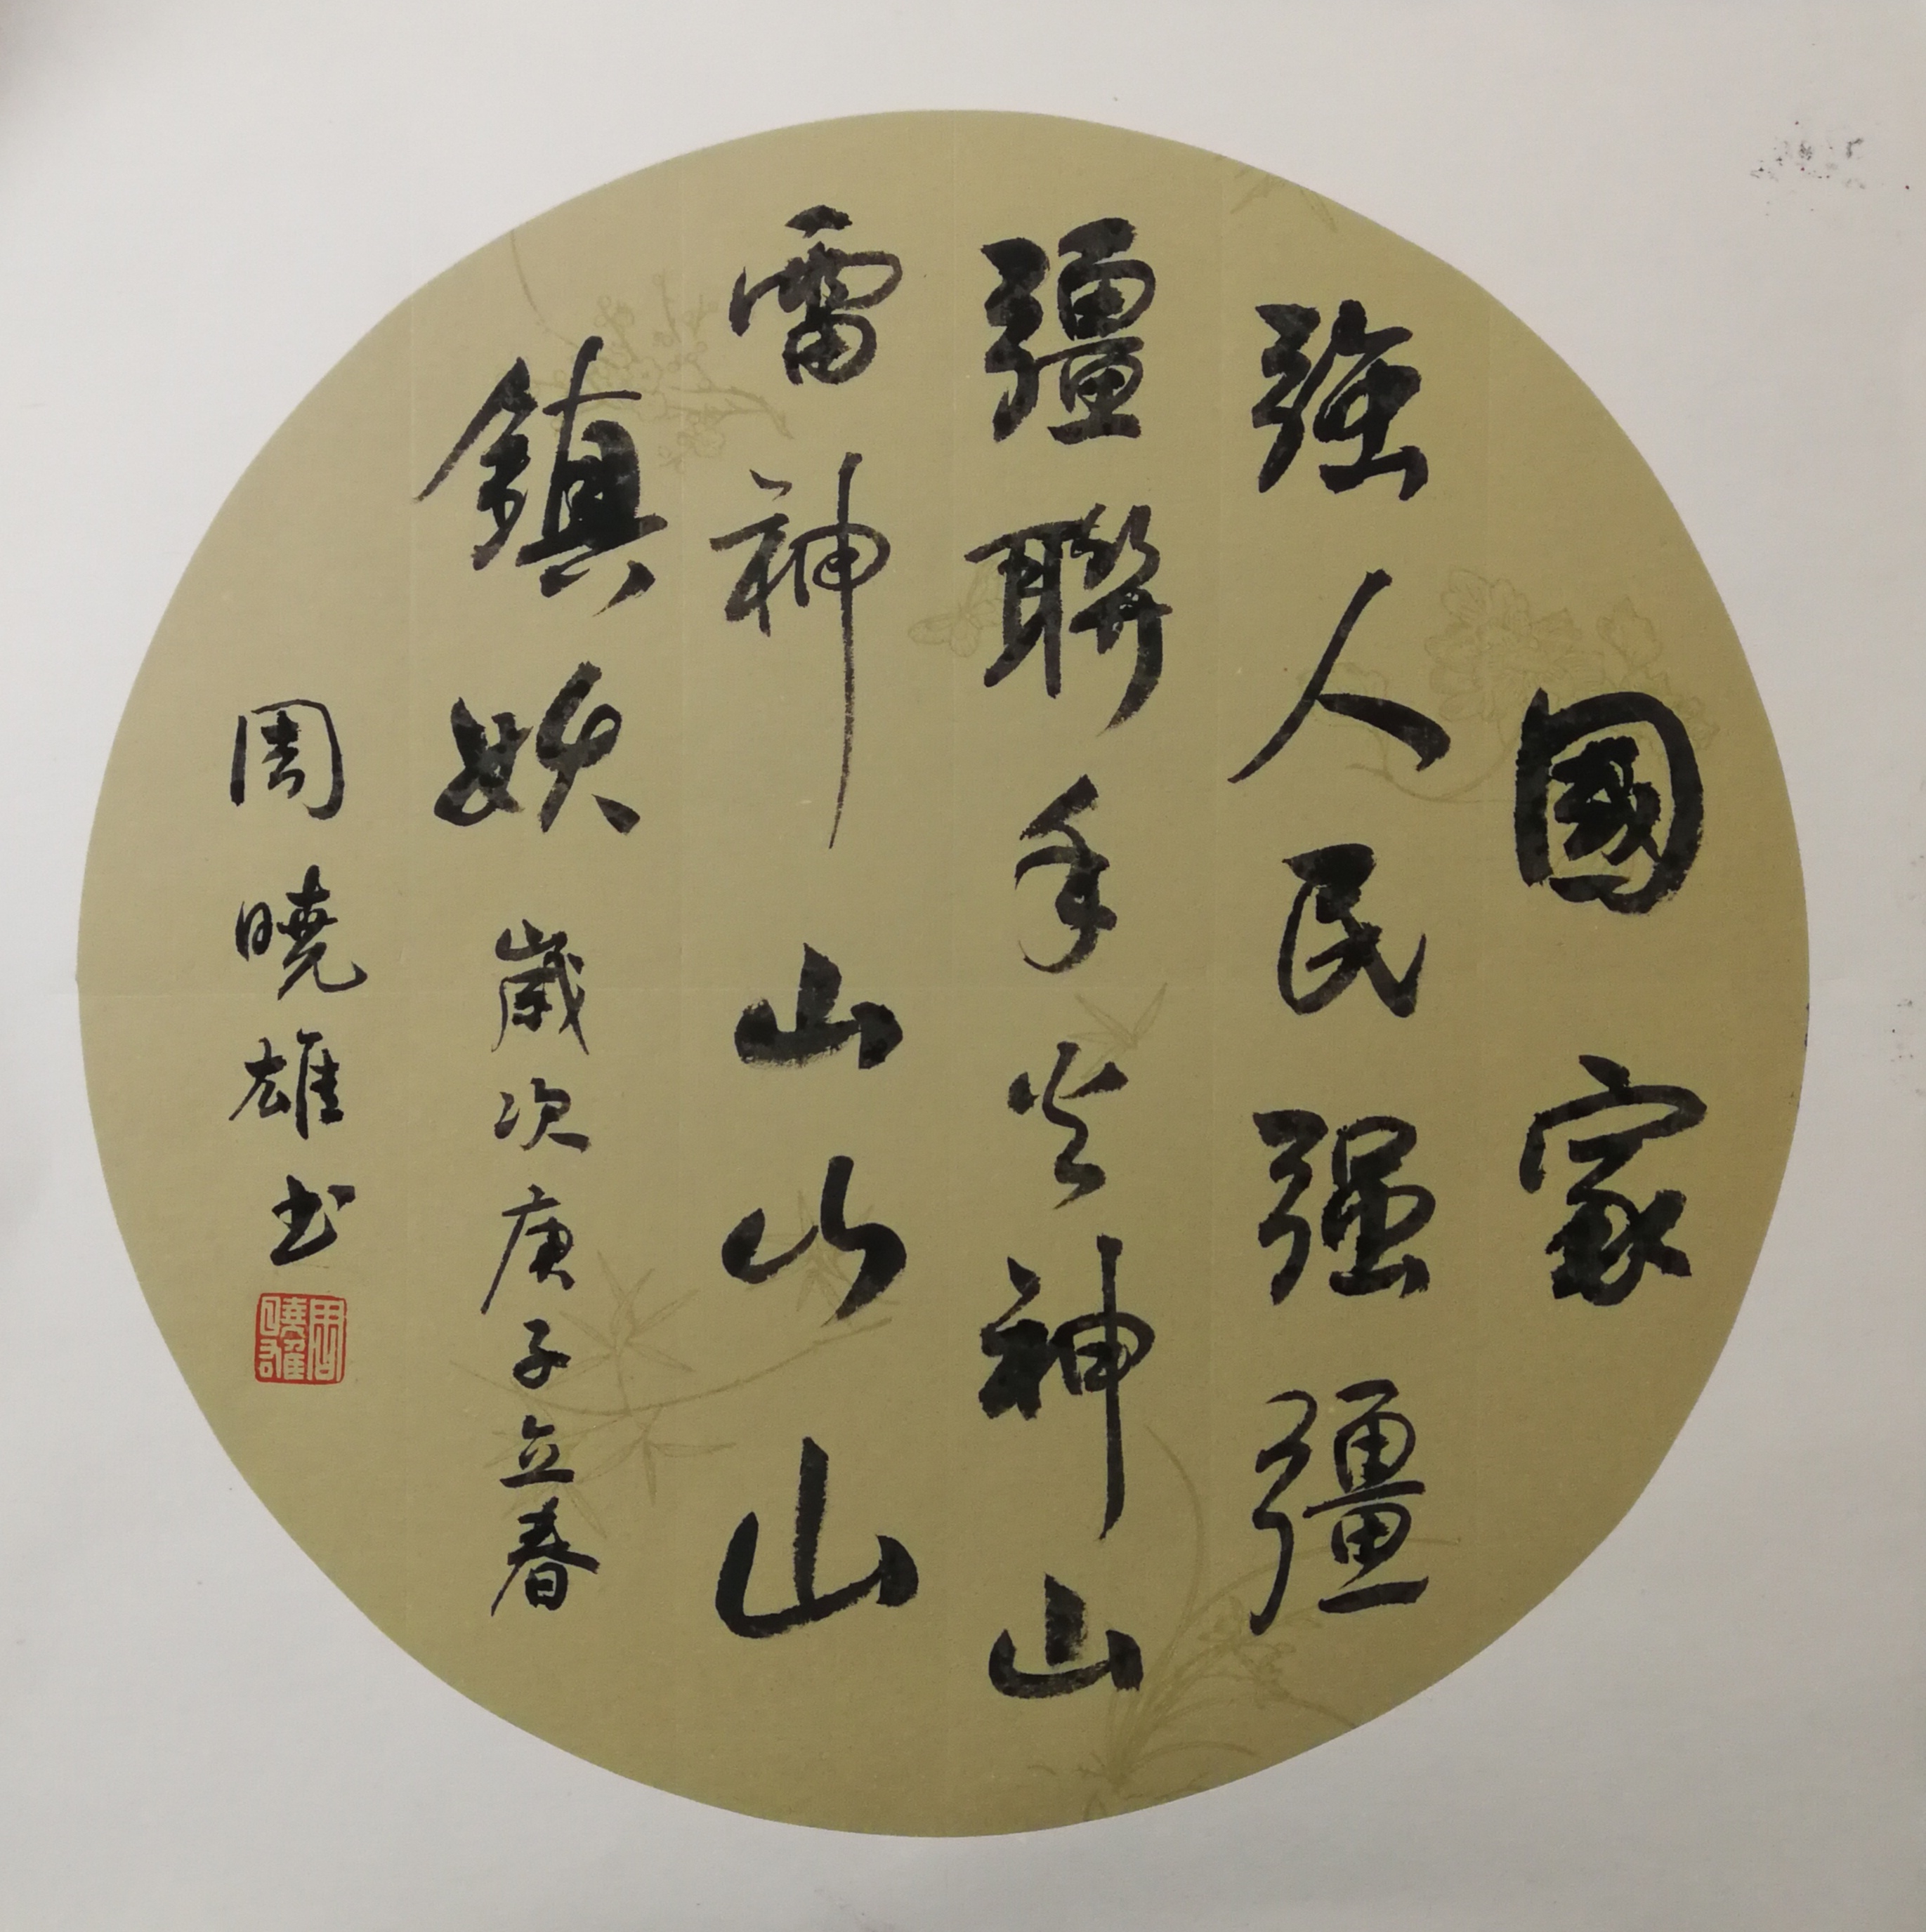 國家
強人民强疆
疆聯手火神山
雷神山山山山
鎮妖 歲次庚子立春
周曉雄书
周曉雄